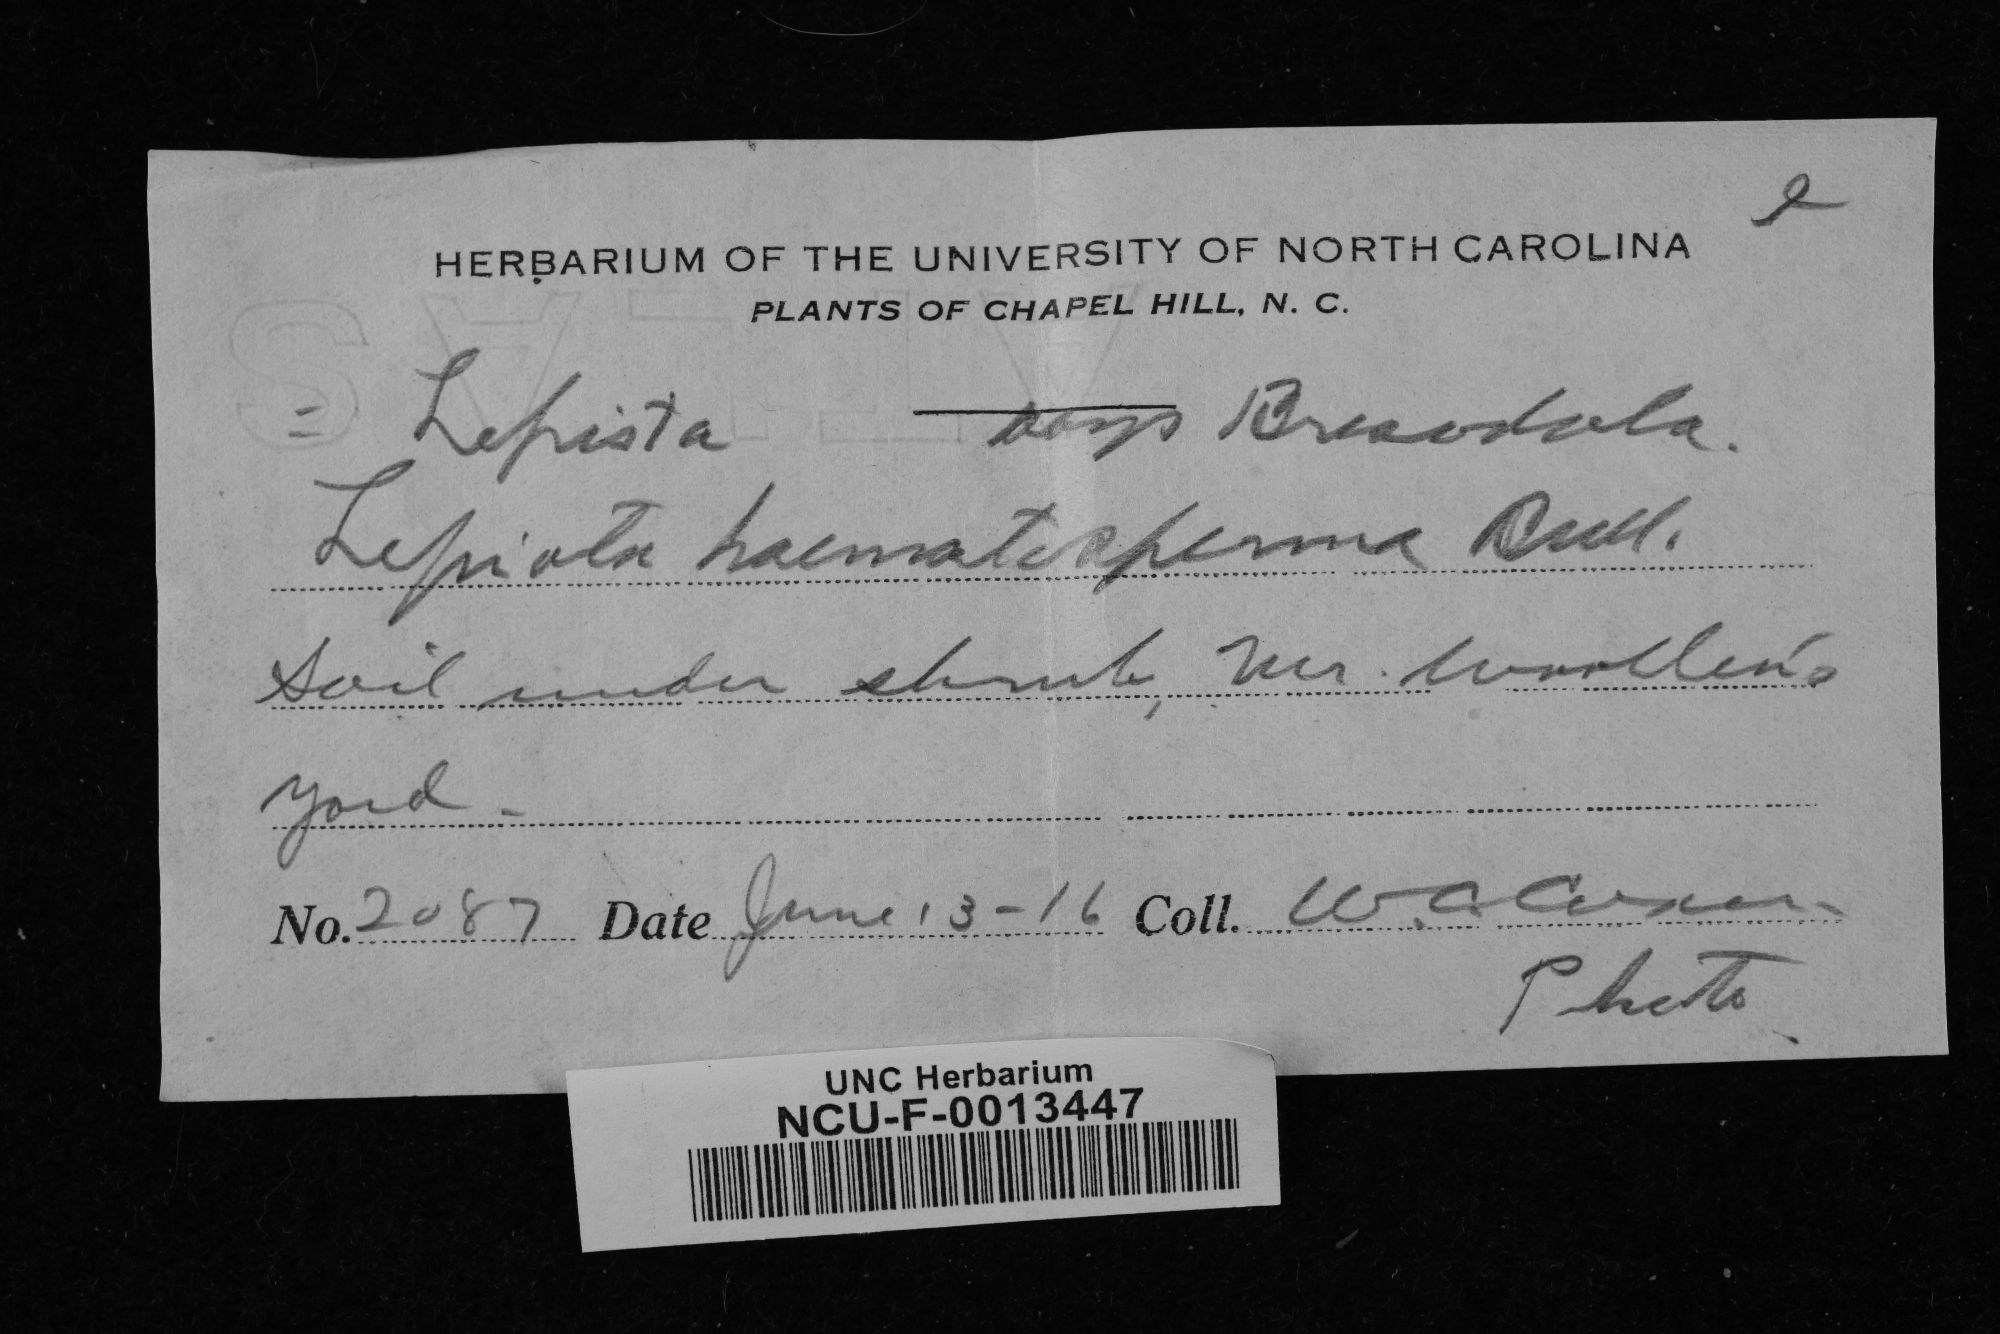 2
HERBARIUM OF THE UNIVERSITY OF NORTH CAROLINA
PLANTS OF CHAPEL HILL, N. C.
= Lepista —— says Bresadola.
Lepiota haematosperma Bull.
Soil under shrub, Mr. Woollen's
yard -
No. 2087 Date June 13-16 Coll. W. C. Coker -
Photo
UNC Herbarium
NCU-F-0013447